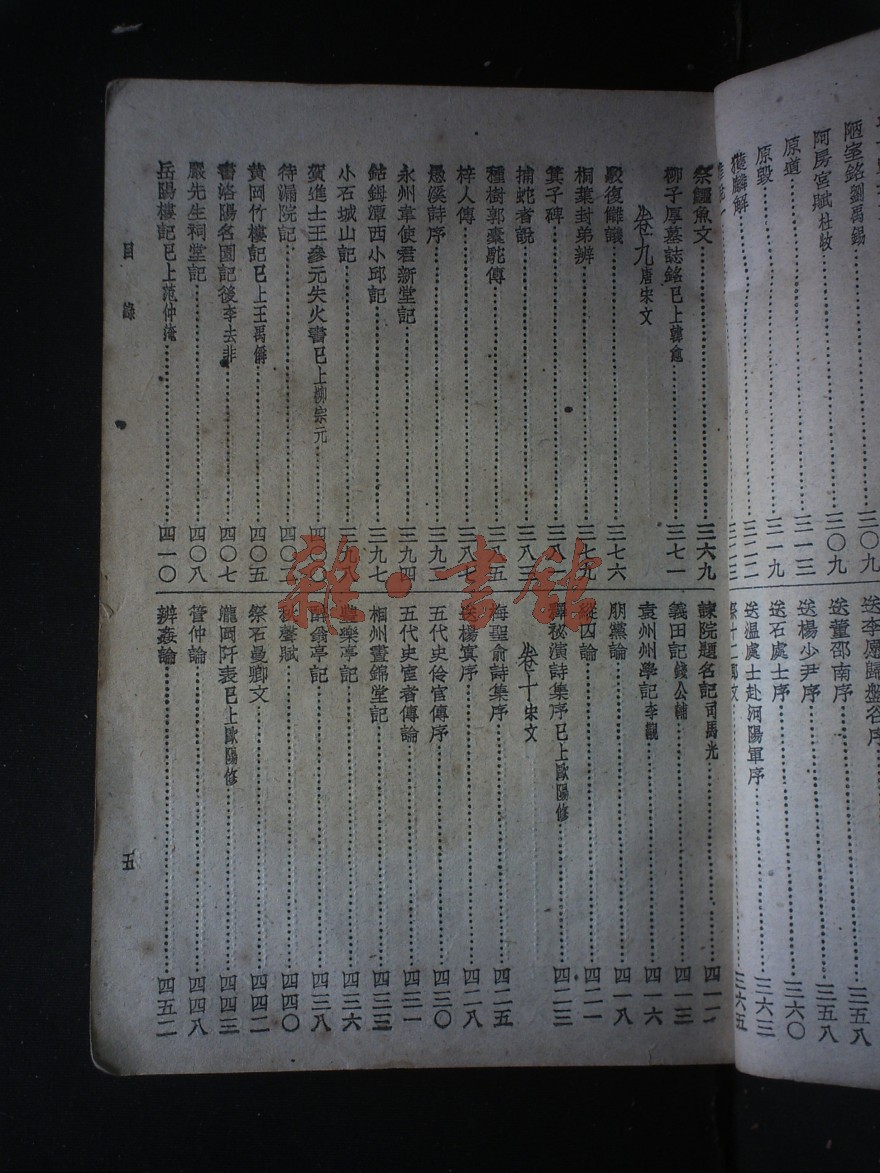 陋室銘劉禹錫……三〇九
阿房宮賦杜牧……三〇九
原道……三一三
原毀……三一九
獲麟解……三二二
送李愿歸盤谷序……三五八
送董邵南序……三五八
送楊少尹序……三六〇
送石處士序……三六三
送溫處士赴河陽軍序……三六五
祭鱷魚文……三六九
柳子厚墓誌銘已上韓愈……三七一
卷九唐宋文
駁復讎議……三七六
桐葉封弟辨……三七九
箕子碑……三八一
捕蛇者說……三八三
種樹郭橐駝傳……三八五
梓人傳……三八七
愚溪詩序……三九二
永州韋使君新堂記……三九四
鈷鉧潭西小邱記……三九七
小石城山記……三九八
賀進士王參元失火書已上柳宗元……四〇〇
待漏院記……四〇二
黃岡竹樓記已上王禹偁……四〇五
書洛陽名園記後李去非……四〇七
嚴先生祠堂記……四〇八
岳陽樓記已上范仲淹……四一〇
諫院題名記司馬光……四一二
義田記錢公輔……四一三
袁州州學記李覯……四一六
朋黨論……四一八
縱囚論……四二一
釋秘演詩集序已上歐陽修……四二三
卷十宋文
梅聖俞詩集序……四二五
送楊寘序……四二八
五代史伶官傳序……四三〇
五代史宦者傳論……四三一
相州晝錦堂記……四三三
豐樂亭記……四三六
醉翁亭記……四三八
秋聲賦……四四〇
祭石曼卿文……四四二
瀧岡阡表已上歐陽修……四四三
管仲論……四四八
辨姦論……四五二
目錄
五
雜·書館